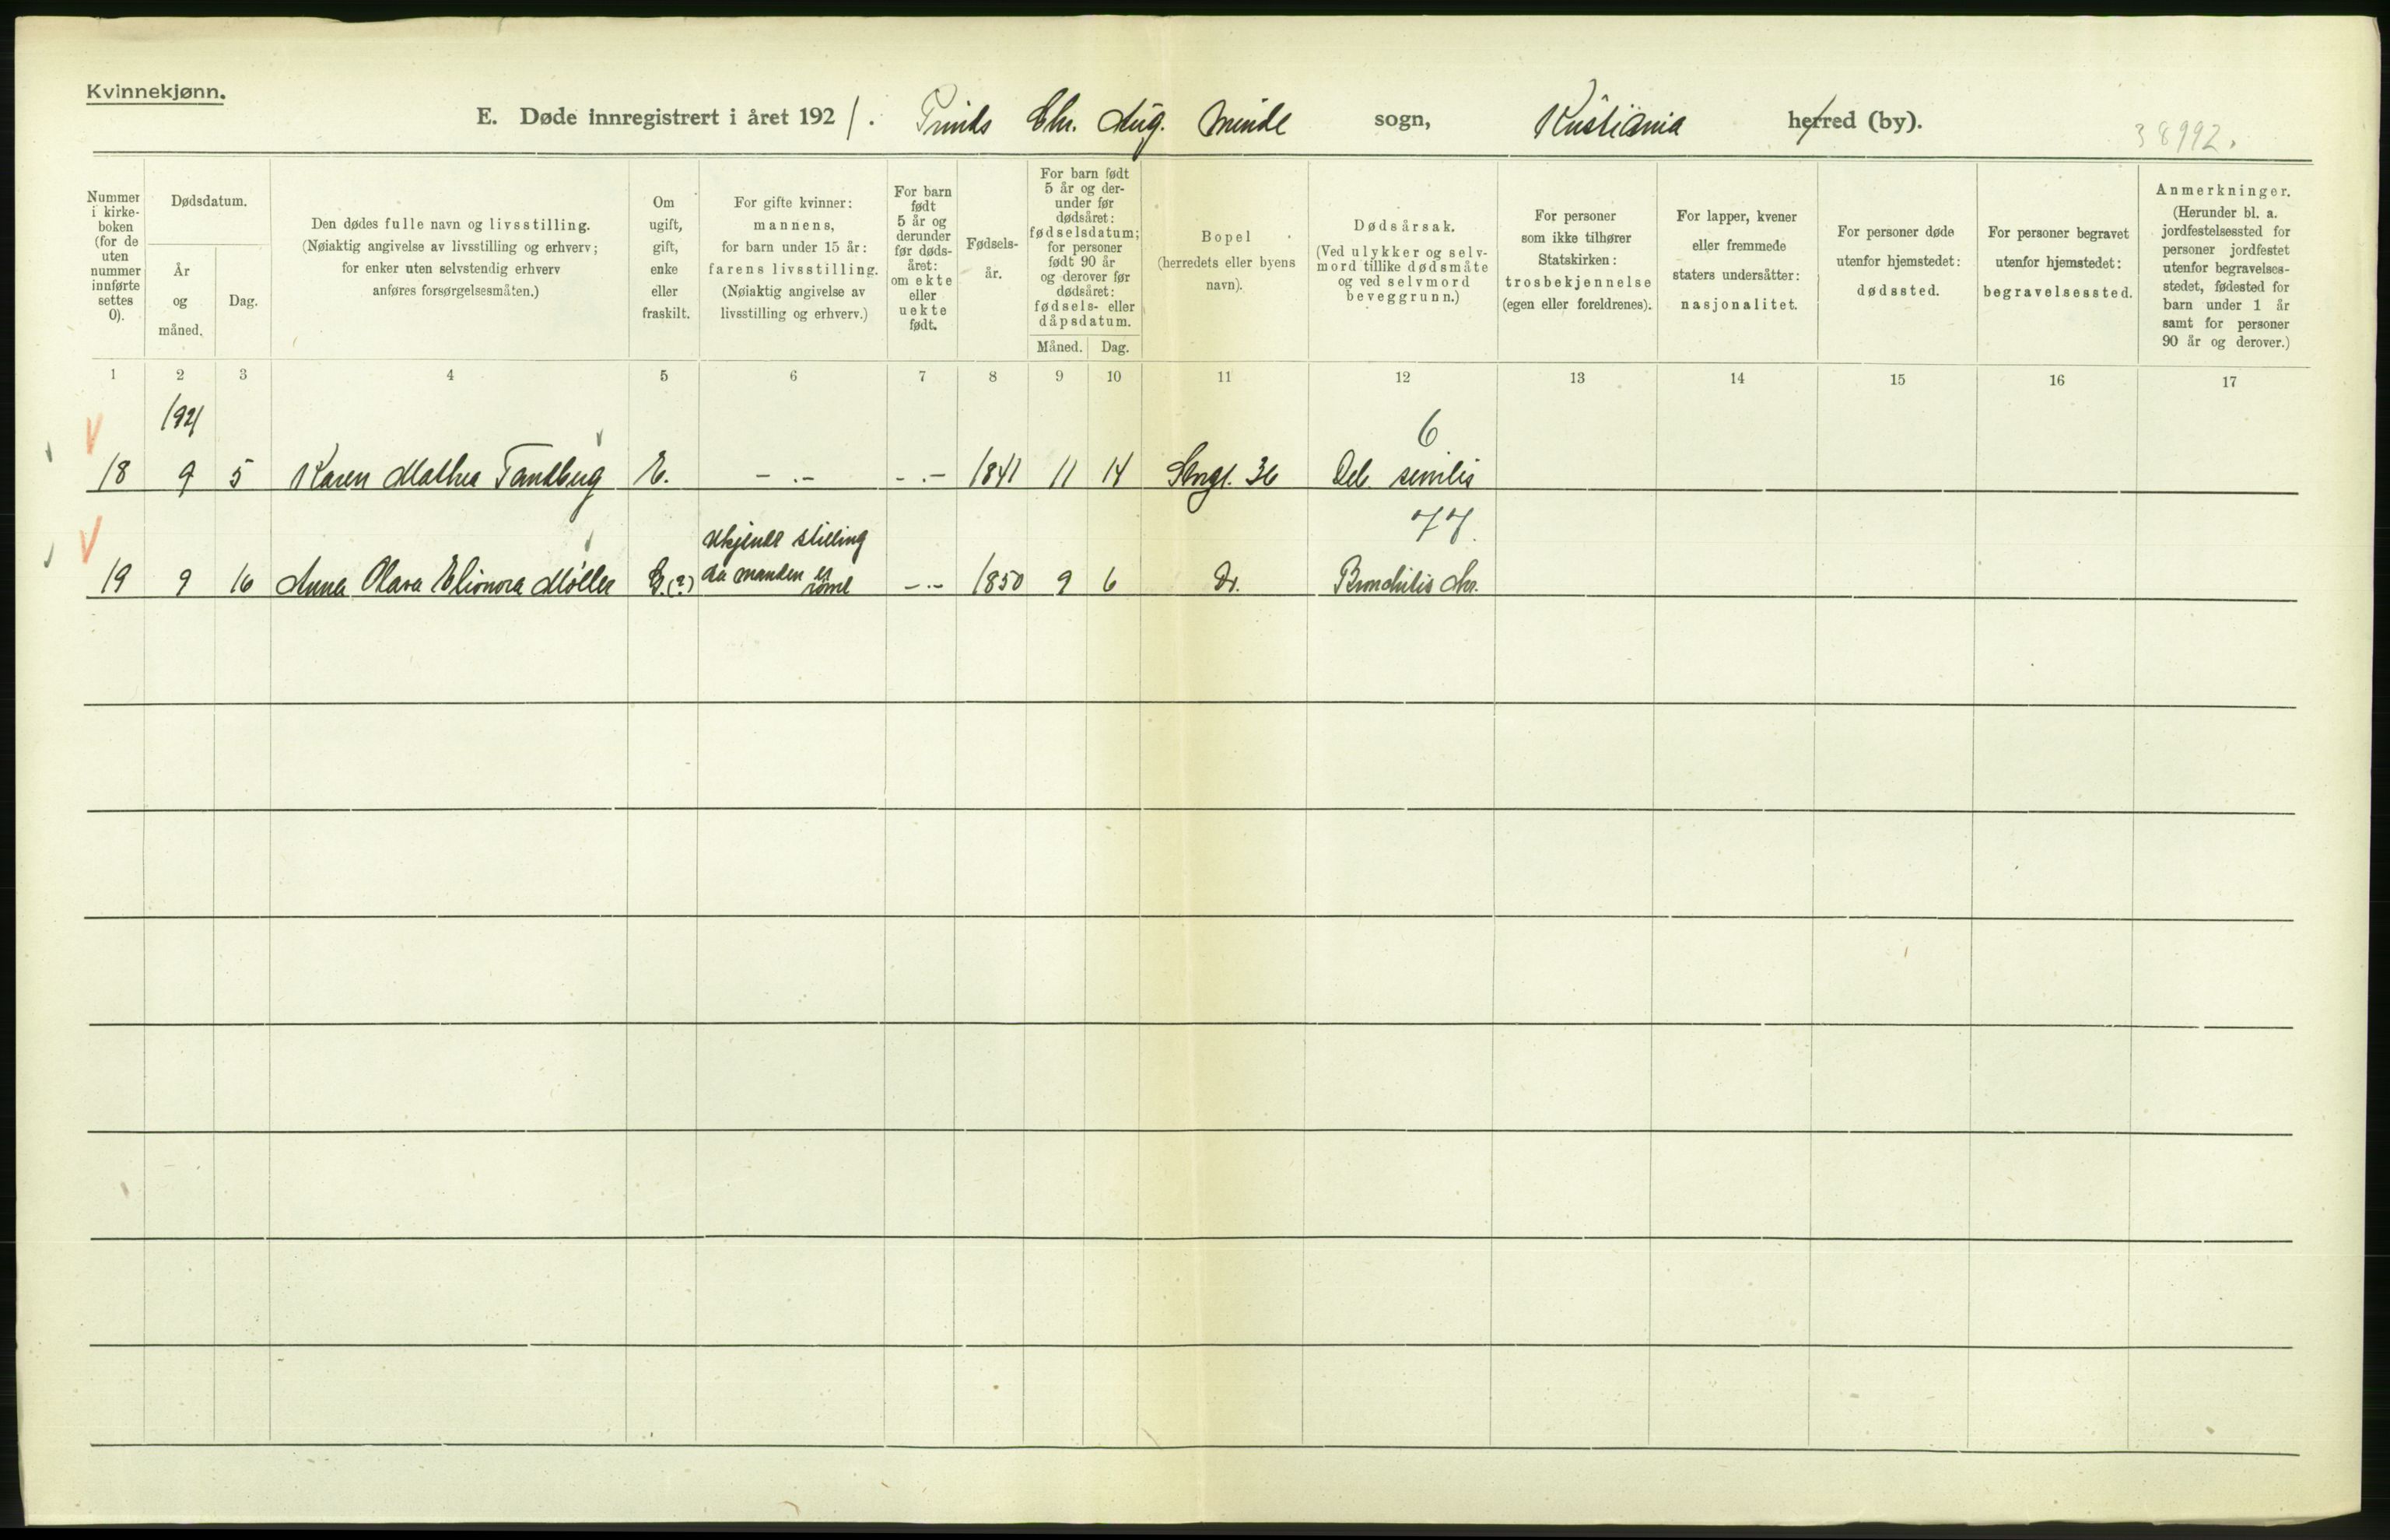 Kvinnekjønn.
E. Døde innregistrert i året 1921. Prinds Chr. Aug. Minde sogn, Kristiania herred (by).
38992.
Nummer i kirke-boken (for de uten nummer innførte settes 0).
Dødsdatum.
År og måned.
Dag.
Den dødes fulle navn og livsstilling.
(Nøiaktig angivelse av livsstilling og erhverv;
for enker uten selvstendig erhverv
anføres forsørgelsesmåten.)
Om
ugift,
gift,
enke
eller
fraskilt.
For gifte kvinner:
mannens,
for barn under 15 år:
farens livsstilling.
(Nøiaktig angivelse av
livsstilling og erhverv.)
For barn
født
5 år og
derunder
før døds-
året:
om ekte
eller
uekte
født.
Fødsels-
år.
For barn født
5 år og der-
under før
dødsåret:
fødselsdatum;
for personer
født 90 år
og derover før
dødsåret:
fødsels- eller
dåpsdatum.
Måned. Dag.
Bopel
(herredets eller byens
navn).
Dødsårsak.
(Ved ulykker og selv-
mord tillike dødsmåte
og ved selvmord
beveggrunn.)
For personer
som ikke tilhører
Statskirken:
trosbekjennelse
(egen eller foreldrenes).
For lapper, kvener
eller fremmede
staters undersåtter:
nasjonalitet.
For personer døde
utenfor hjemstedet:
dødssted.
For personer begravet
utenfor hjemstedet:
begravelsessted.
Anmerkninger.
(Herunder bl. a.
jordfestelsessted for
personer jordfestet
utenfor begravelses-
stedet, fødested for
barn under 1 år
samt for personer
90 år og derover.)
1 2 3 4 5 6 7 8 9 10 11 12 13 14 15 16 17
1921
6
18 9 5 Karen Mathea Tandberg E. - . - - . - 1841 11 14 Strgt. 36 Deb. senilis
77.
Ukjendt stilling
19 9 16 Anna Olava Elionora Møller G. (?) da manden er rømt - . - 1850 9 6 Do. Bronchitis chr.